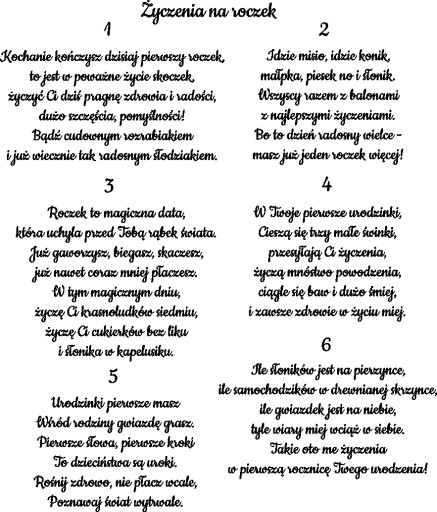 Życzenia na roczek
1
Kochanie kończysz dzisiaj pierwszy roczek,
to jest w poważne życie skoczek,
życzyć Ci dziś pragnę zdrowia i radości,
dużo szczęścia, pomyślności!
Bądź cudownym rozrabiakiem
i już wiecznie tak radosnym słodziakiem.
2
Idzie misio, idzie konik,
małpka, piesek no i słonik.
Wszyscy razem z balonami
z najlepszymi życzeniami.
Bo to dzień radosny wielce -
masz już jeden roczek więcej!
3
Roczek to magiczna data,
która uchyla przed Tobą rąbek świata.
Już gaworzysz, biegasz, skaczesz,
już nawet coraz mniej płaczesz.
W tym magicznym dniu,
życzę Ci krasnoludków siedmiu,
życzę Ci cukierków bez liku
i słonika w kapelusiku.
4
W Twoje pierwsze urodzinki,
Cieszą się trzy małe świnki,
przesyłają Ci życzenia,
życzą mnóstwo powodzenia,
ciągle się baw i dużo śmiej,
i zawsze zdrowie w życiu miej.
5
Urodzinki pierwsze masz
Wśród rodziny gwiazdę grasz.
Pierwsze słowa, pierwsze kroki
To dzieciństwa są uroki.
Rośnij zdrowo, nie płacz wcale,
Poznawaj świat wytrwale.
6
Ile słoników jest na pierzynce,
ile samochodzików w drewnianej skrzynce,
ile gwiazdek jest na niebie,
tyle wiary miej wciąż w siebie.
Takie oto me życzenia
w pierwszą rocznicę Twego urodzenia!